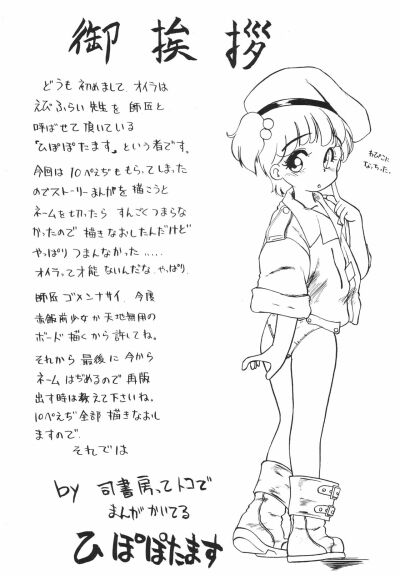 御挨拶
どうも初めまして オイラは
えびふらい先生を師匠と
呼ばせて頂いている
「ひぽぽたます」という者です。
今回は10ぺえぢももらってしまった
のでストーリーまんがを描こうと
ネームを切ったら すんごくつまらな
かったので描きなおしたんだけど
やっぱりつまんなかった.....
オイラって才能ないんだな やっぱり.
師匠 ゴメンナサイ. 今度
美少女か天地無用の
ボード描くから許してね。
それから 最後に 今から
ネームはぢめるので 再版
出す時は教えて下さいね。
10ぺえぢ全部 描きなおし
ますので.
それでは
by 司書房ってトコで
まんがかいてる
ひぽぽたます
なっちった.